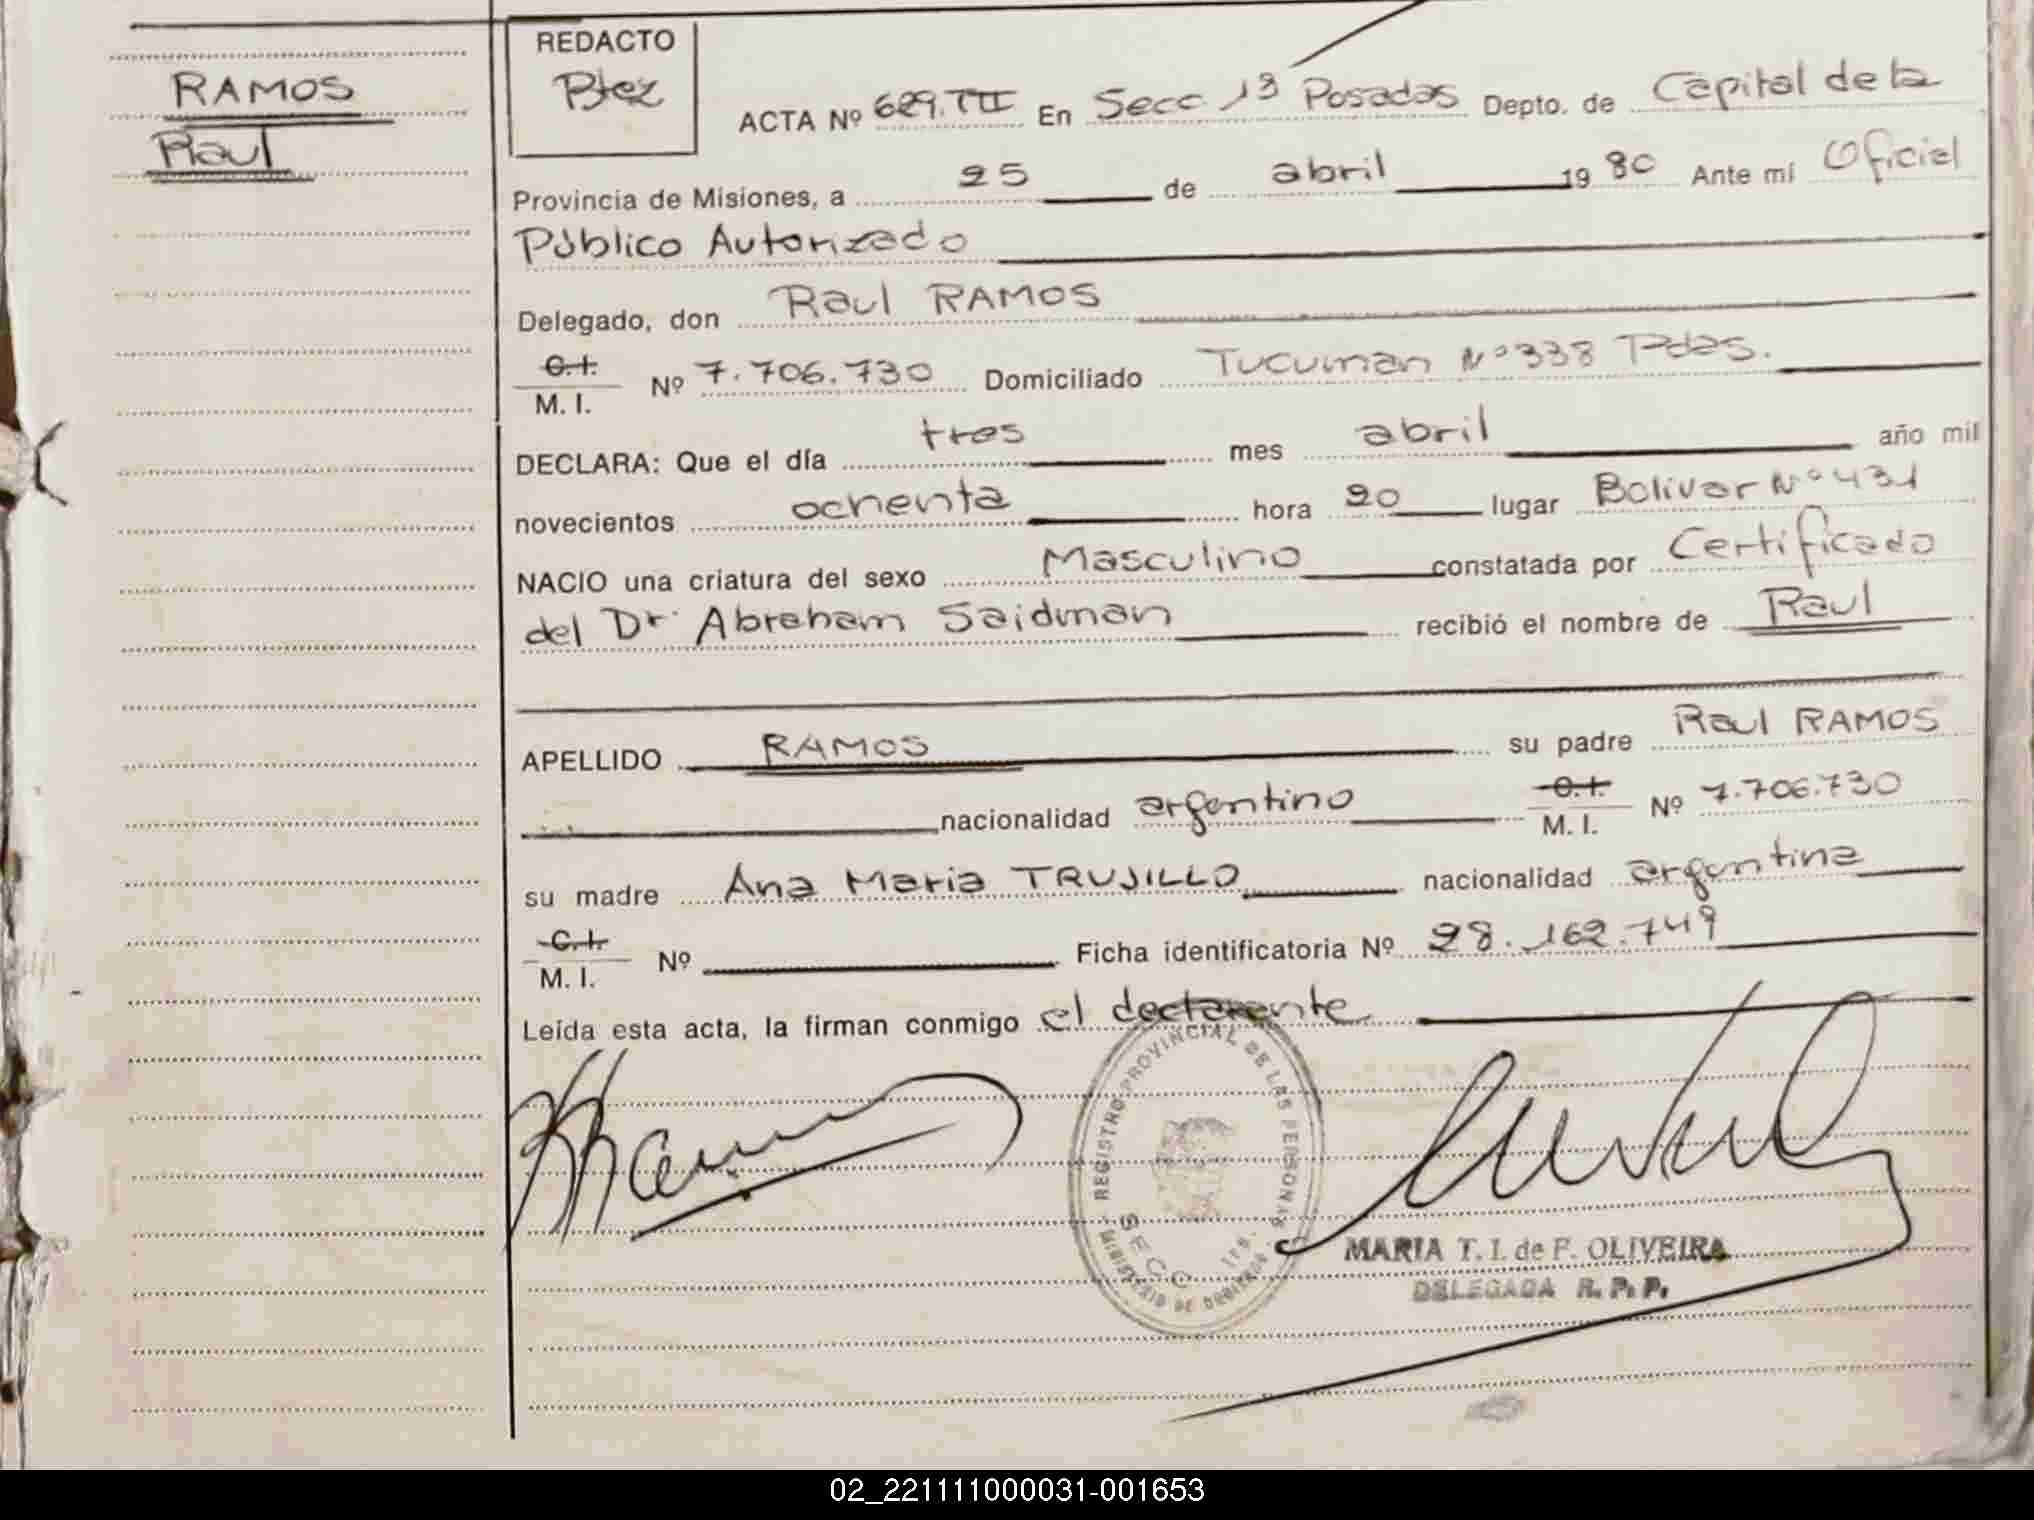 RAMOS
Raul
REDACTO
Btez
ACTA Nº 629.TII En Secc 13 Posadas Depto. de Capital de la
Provincia de Misiones, a 25 de abril 1980 Ante mí Oficial
Público Autorizado
Delegado, don Raul RAMOS
C.I.
M. I. Nº 7.706.730 Domiciliado Tucuman Nº 338 Pdas.
DECLARA: Que el día tres mes abril año mil
novecientos ochenta hora 20 lugar Bolivar Nº 431
NACIO una criatura del sexo Masculino constatada por Certificado
del Dr. Abraham Saidman recibió el nombre de Raul
APELLIDO RAMOS su padre Raul RAMOS
nacionalidad argentino C.I. M. I. Nº 7.706.730
su madre Ana Maria TRUJILLO nacionalidad argentina
C.I.
M. I. Nº Ficha identificatoria Nº 28.162.749
Leída esta acta, la firman conmigo el declarante
REGISTRO PROVINCIAL DE LAS PERSONAS
SECC
MINISTERIO DE GOBIERNO
MARIA T. I. de F. OLIVEIRA
DELEGADA R. P. P.
02_221111000031-001653